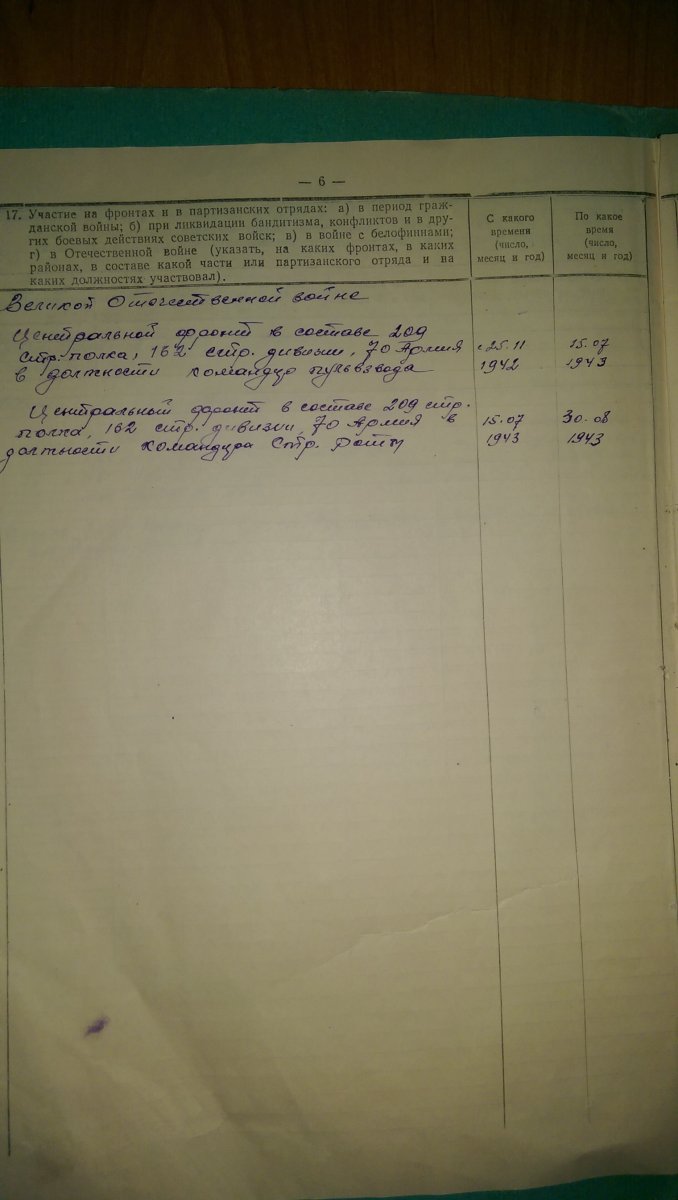 — 6 —
17. Участие на фронтах и в партизанских отрядах: а) в период граж-
данской войны; б) при ликвидации бандитизма, конфликтов и в дру-
гих боевых действиях советских войск; в) в войне с белофиннами;
г) в Отечественной войне (указать, на каких фронтах, в каких
районах, в составе какой части или партизанского отряда и на
каких должностях участвовал).
С какого
времени
(число,
месяц и год)
По какое
время
(число,
месяц и год)
Великой Отечественной войне
Центральной фронт в составе 209
стр. полка, 162 стр. дивизии, 70 Армия с 25.11 15.07
в должности командира пульвзвода 1942 1943
Центральный фронт в составе 209 стр.
полка, 162 стр. дивизии, 70 Армия в 15.07 30.08
должности командира Стр. Роты 1943 1943